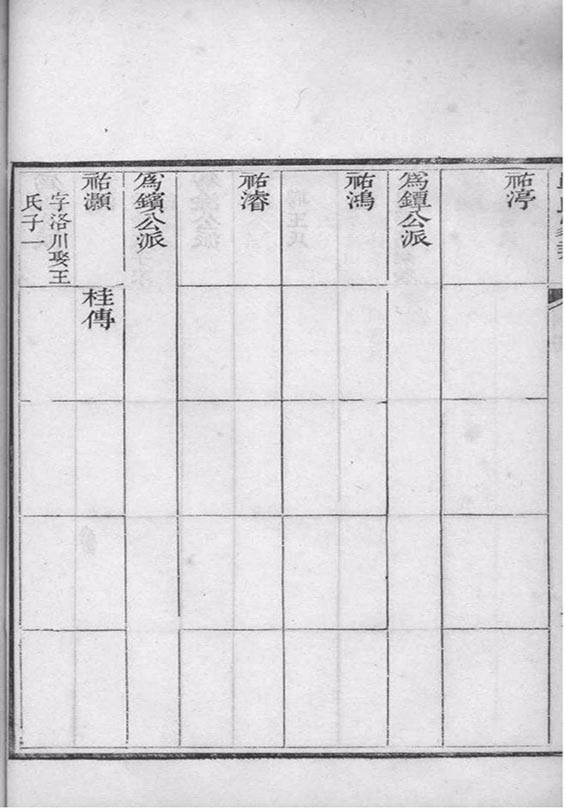 祐渟
為鐔公派
祐鴻
祐濬
為鑌公派
祐灝
字洛川娶王
氏子一
桂傳